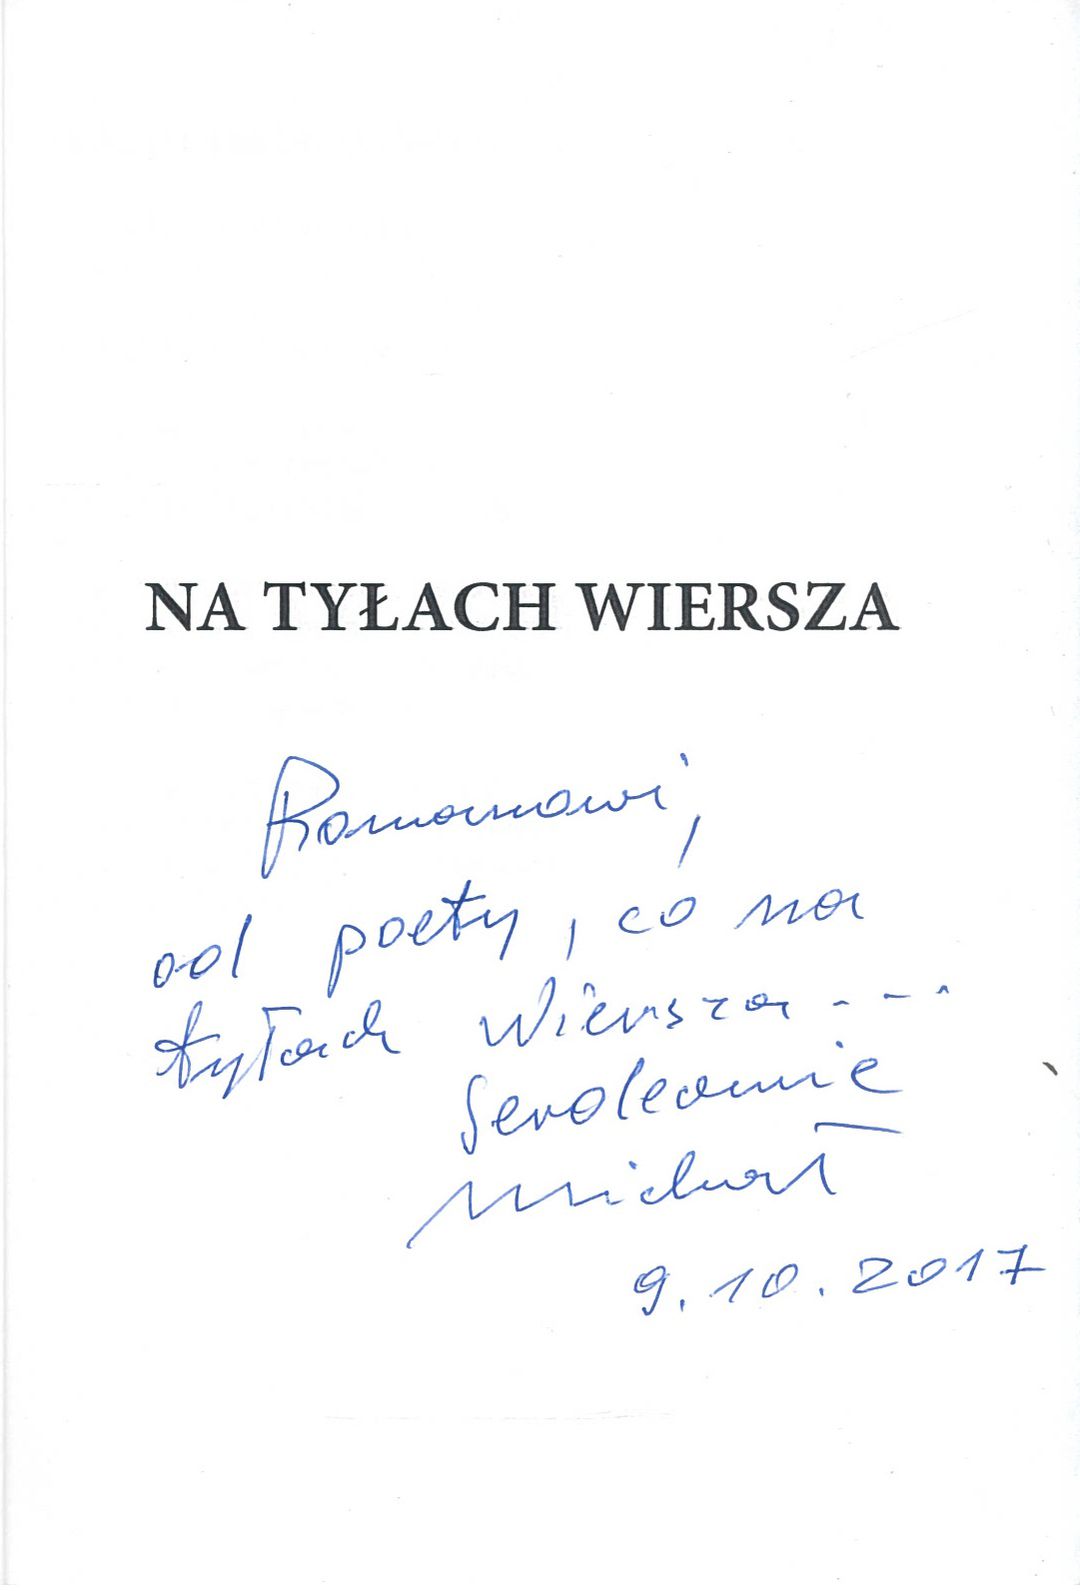 NA TYŁACH WIERSZA
Romanowi,
od poety, co na
tyłach wiersza...
Serdecznie
Michał
9.10.2017